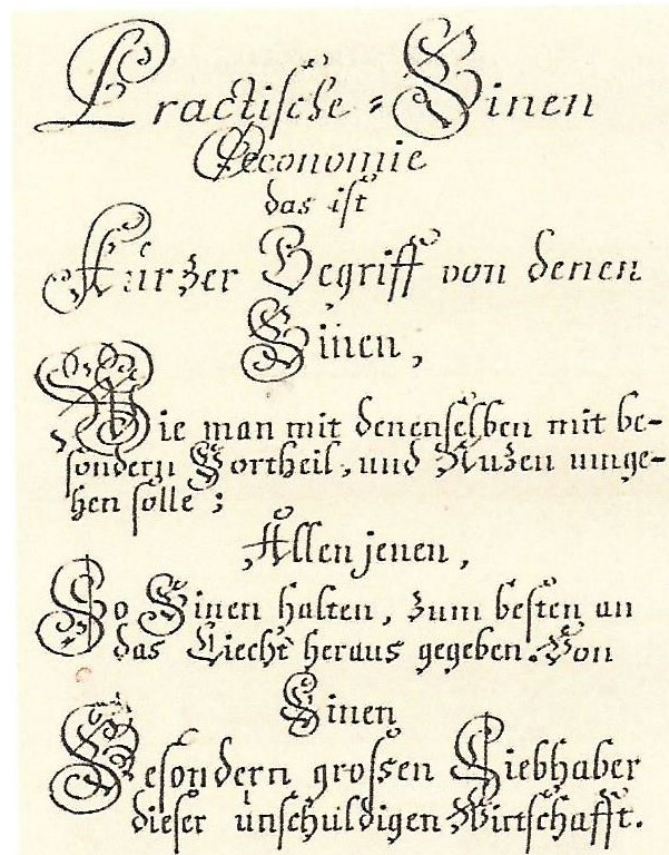 Practiſche = Binen
Oeconomie
das iſt
Kurzer Begriff von denen
Binen,
Wie man mit denenſelben mit be-
ſondern Vortheil, und Nuzen umge-
hen ſolle;
Allen jenen,
So Binen halten, zum beſten an
das Liecht heraus gegeben. Von
Einen
Beſondern groſſen Liebhaber
dieſer unſchuldigen Wirtſchafft.